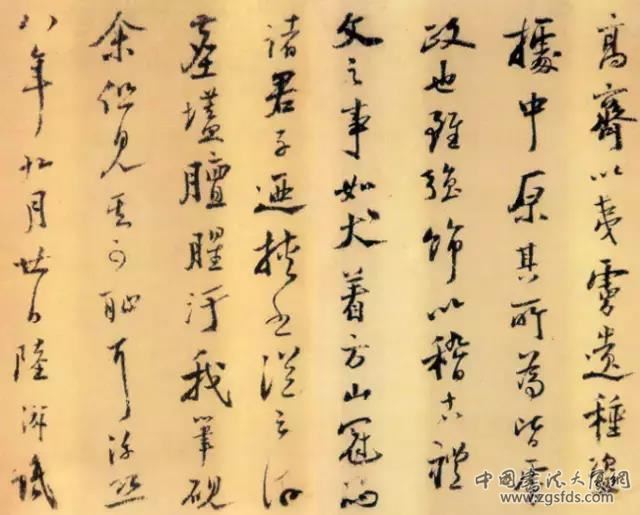 高齊以夷虜遺種盜
據中原其所為皆虜
政也雖強飾以稽古禮
文之事如犬着方山冠而
諸君子迺挾書從之游
塵壒膻腥汙我筆硯
余但見其可恥耳淳熙
八年九月廿日陸游識
中國書法大厦網
www.zgsfds.com